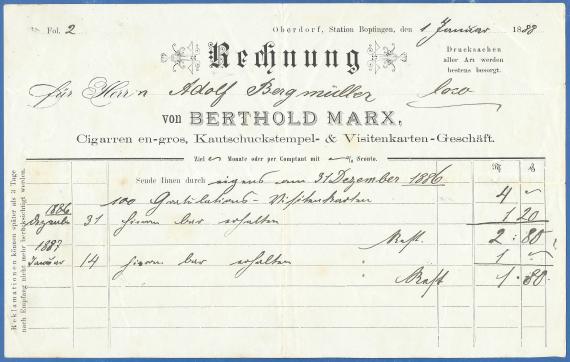 Fol. 2
Oberdorf, Station Bopfingen, den 1 Januar 1888
Rechnung
Drucksachen
aller Art werden
bestens besorgt.
für Herrn Adolf Bergmüller loco
von BERTHOLD MARX,
Cigarren en-gros, Kautschuckstempel- & Visitenkarten-Geschäft.
Ziel Monate oder per Comptant mit % Sconto.
Reklamationen können später als 3 Tage
nach Empfang nicht mehr berücksichtigt werden.
Sende Ihnen durch eigens am 31 Dezember 1886
100 Gratulations-Visitenkarten 4 -
1886
Dezember 31 hieran bar erhalten 1 20
Rest. 2 : 80
1887
Januar 14 hieran bar erhalten 1 -
Rest 1 . 80.